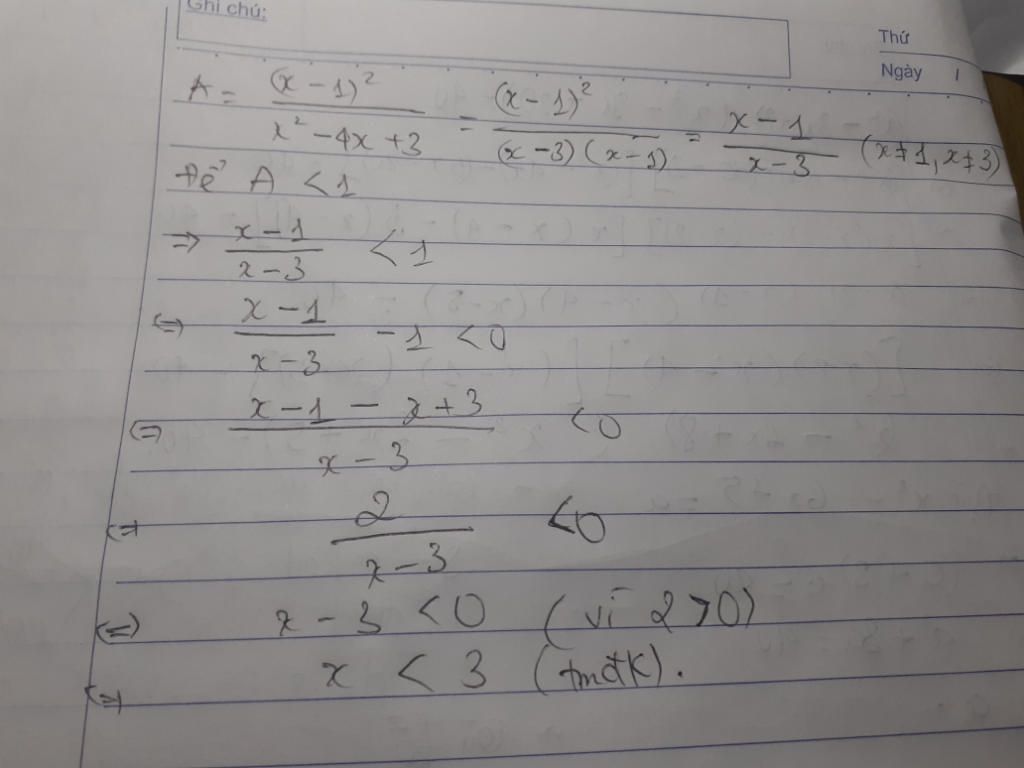 Ghi chú:
Thứ
Ngày
A = (x - 1)² / (x² - 4x + 3) = (x - 1)² / ((x - 3)(x - 1)) = (x - 1) / (x - 3) (x ≠ 1, x ≠ 3)
Để A < 1
=> (x - 1) / (x - 3) < 1
<=> (x - 1) / (x - 3) - 1 < 0
<=> (x - 1 - x + 3) / (x - 3) < 0
<=> 2 / (x - 3) < 0
<=> x - 3 < 0 (vì 2 > 0)
<=> x < 3 (tmđk).